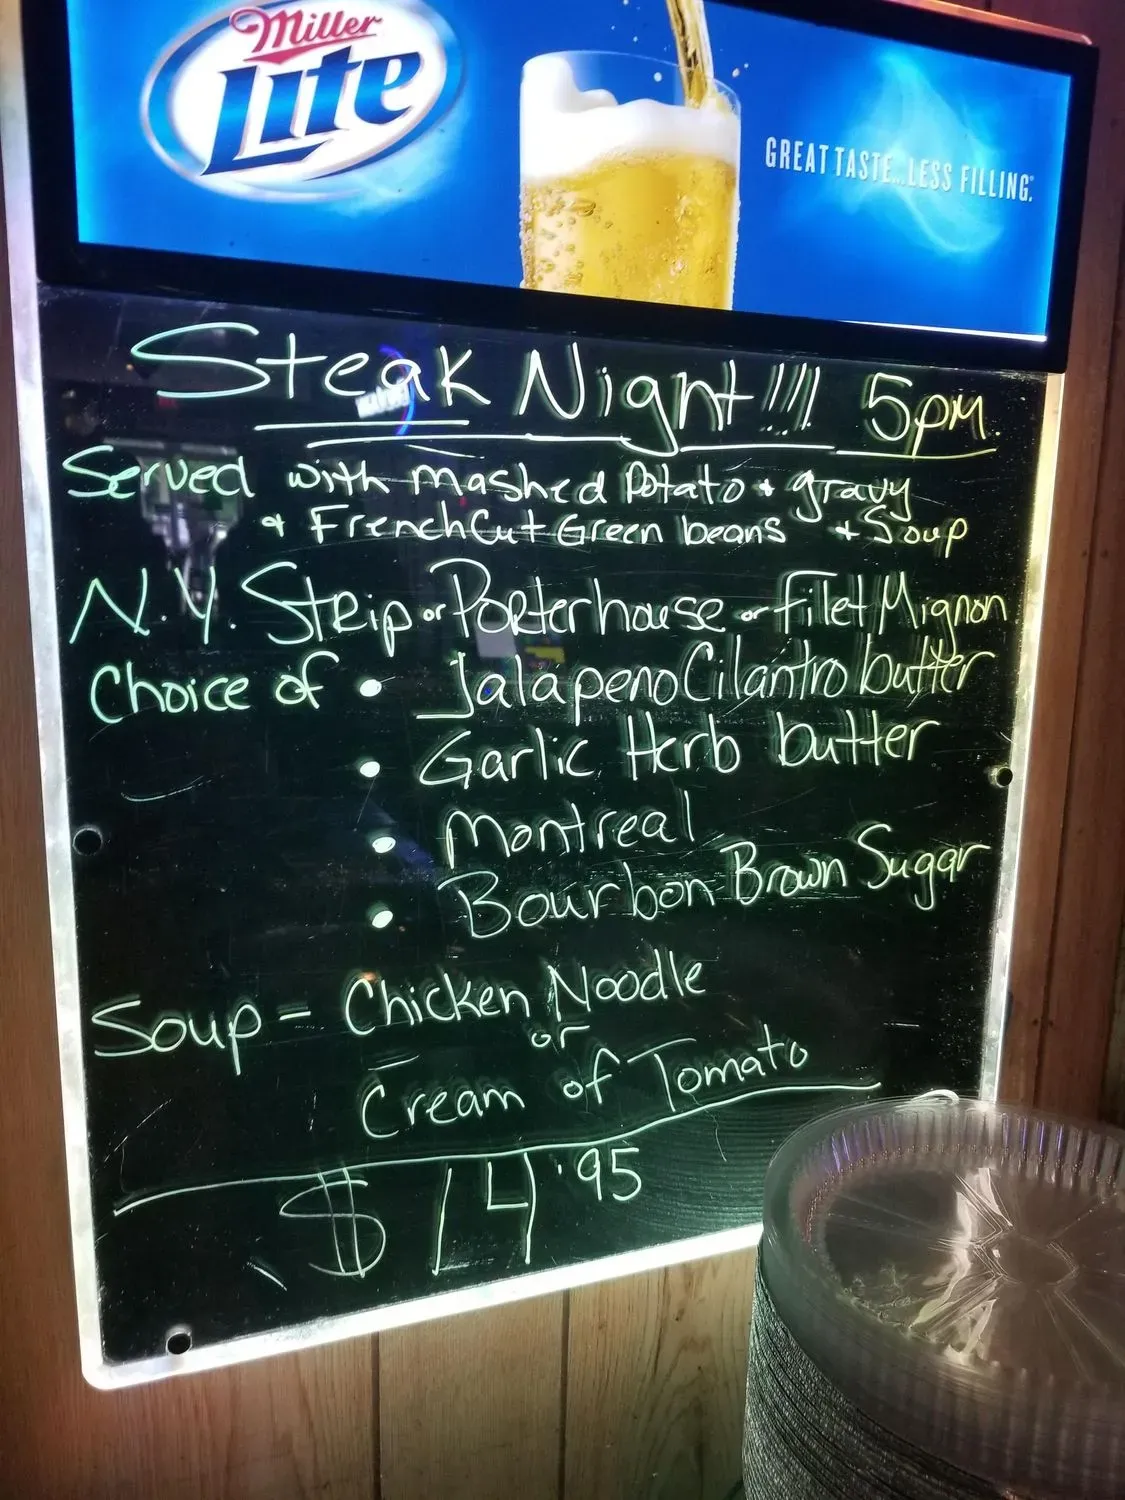 Miller
Lite
GREAT TASTE...LESS FILLING.®
Steak Night!!!! 5pm.
Served with mashed Potato + gravy
+ French Cut Green beans + Soup
N.Y. Strip or Porterhouse or Filet Mignon
Choice of • Jalapeno Cilantro butter
• Garlic Herb butter
• Montreal
• Bourbon Brown Sugar
Soup = Chicken Noodle
or
Cream of Tomato
$14.95